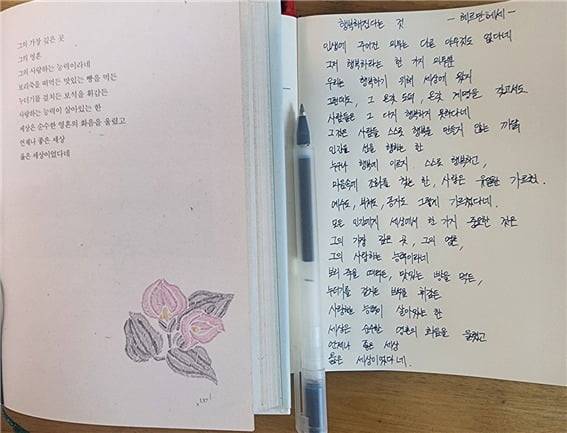 그의 가장 깊은 곳
그의 영혼
그의 사랑하는 능력이라네
보리죽을 떠먹든 맛있는 빵을 먹든
누더기를 걸치든 보석을 휘감든
사랑하는 능력이 살아있는 한
세상은 순수한 영혼의 화음을 울렸고
언제나 좋은 세상
옳은 세상이었다네
행복해진다는 것 - 헤르만헤세 -
인생에 주어진 의무는 다른 아무것도 없다네
그저 행복하라는 한 가지 의무뿐
우리는 행복하기 위해 세상에 왔지
그런데도, 그 온갖 도덕, 온갖 계명을 갖고서도
사람들은 그 다지 행복하지 못하다네
그것은 사람들 스스로 행복을 만들지 않는 까닭
인간은 선을 행하는 한
누구나 행복에 이르지 스스로 행복하고,
마음속에 조화를 찾는 한, 사랑은 유일한 가르침.
예수도, 부처도, 공자도 그렇게 가르쳤다네.
모든 인간에게 세상에서 한 가지 중요한 것은
그의 가장 깊은 곳, 그의 영혼,
그의 사랑하는 능력이라네
보리 죽을 떠먹든, 맛있는 빵을 먹든,
누더기를 걸치든 보석을 휘감든
사랑하는 능력이 살아있는 한
세상은 순수한 영혼의 화음을 울렸고
언제나 좋은 세상
옳은 세상이었다네.